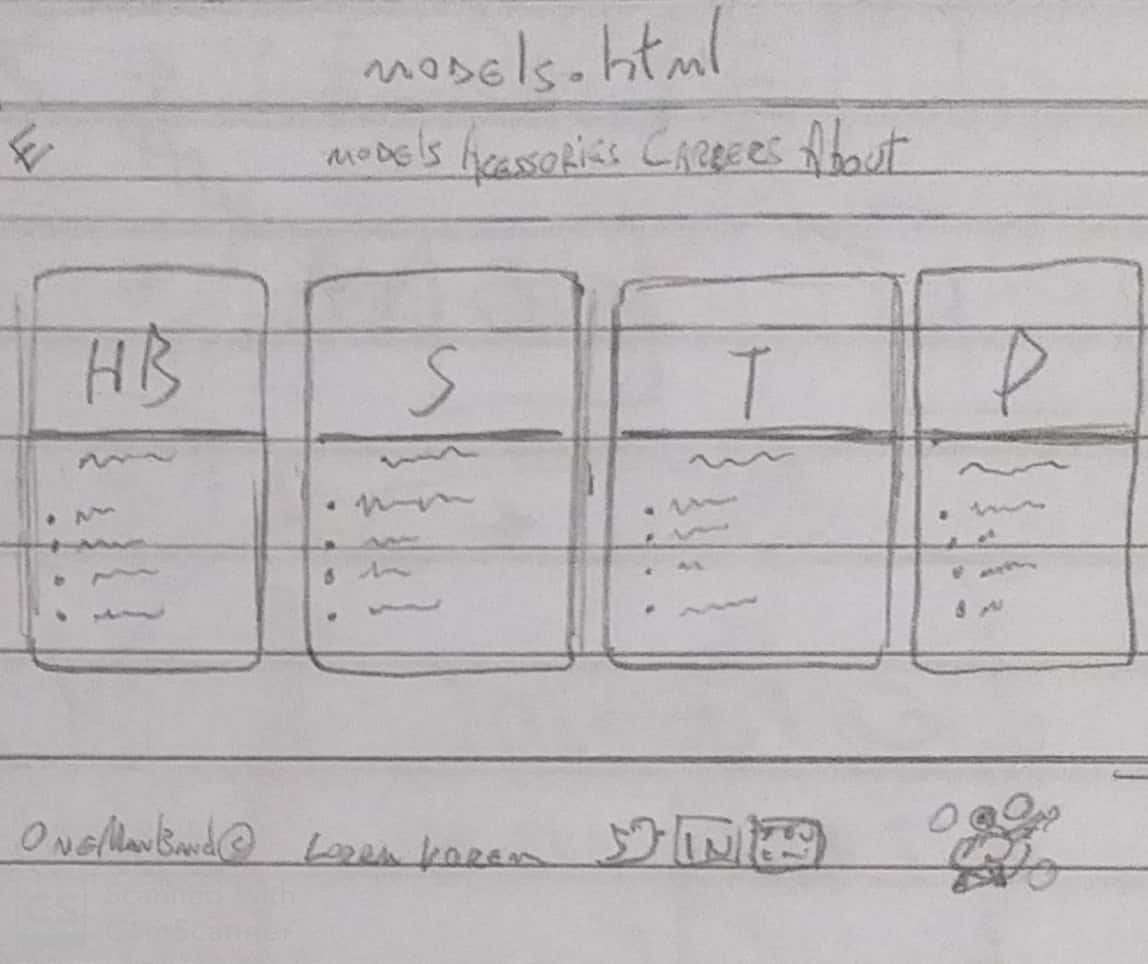 models.html
E models Acessories Careers About
HB S T P
OneManBand© Lorem IN
Scanned with
CamScanner